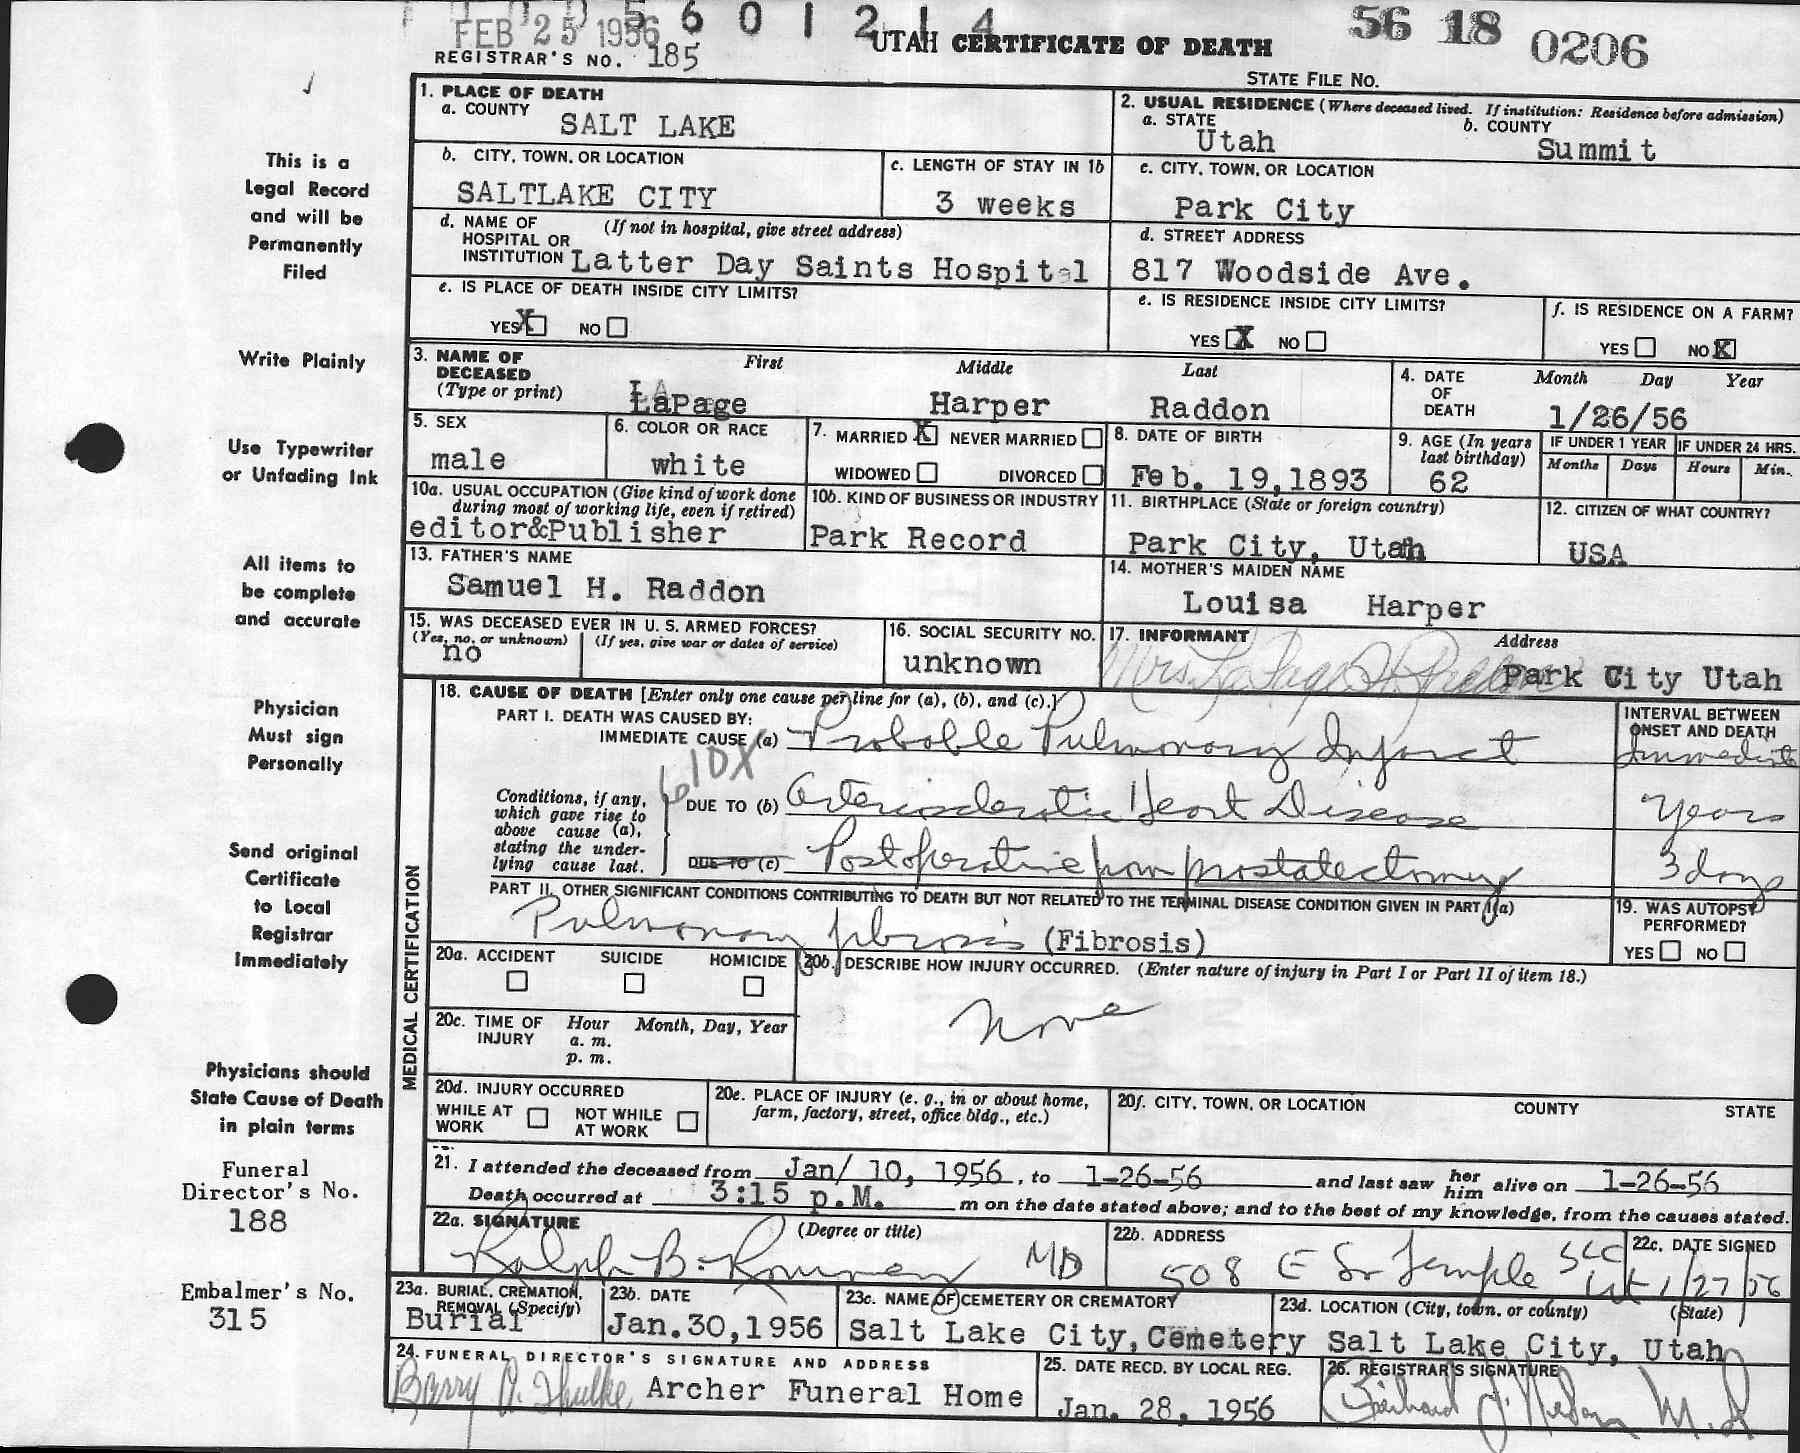 FEB 25 1956 601214 56 18 0206
REGISTRAR'S NO. 185 UTAH CERTIFICATE OF DEATH
STATE FILE NO.
This is a
Legal Record
and will be
Permanently
Filed
Write Plainly
Use Typewriter
or Unfading Ink
All items to
be complete
and accurate
Physician
Must sign
Personally
Send original
Certificate
to Local
Registrar
Immediately
Physicians should
State Cause of Death
in plain terms
Funeral
Director's No.
188
Embalmer's No.
315
1. PLACE OF DEATH
a. COUNTY
SALT LAKE
2. USUAL RESIDENCE (Where deceased lived. If institution: Residence before admission)
a. STATE b. COUNTY
Utah Summit
b. CITY, TOWN, OR LOCATION
SALTLAKE CITY
c. LENGTH OF STAY IN 1b
3 weeks
c. CITY, TOWN, OR LOCATION
Park City
d. NAME OF (If not in hospital, give street address)
HOSPITAL OR
INSTITUTION Latter Day Saints Hospital
d. STREET ADDRESS
817 Woodside Ave.
e. IS PLACE OF DEATH INSIDE CITY LIMITS?
YES X NO
e. IS RESIDENCE INSIDE CITY LIMITS?
YES X NO
f. IS RESIDENCE ON A FARM?
YES NO X
3. NAME OF First Middle Last
DECEASED
(Type or print) LaPage Harper Raddon
4. DATE Month Day Year
OF
DEATH 1/26/56
5. SEX
male
6. COLOR OR RACE
white
7. MARRIED X NEVER MARRIED
WIDOWED DIVORCED
8. DATE OF BIRTH
Feb. 19,1893
9. AGE (In years
last birthday)
62
IF UNDER 1 YEAR IF UNDER 24 HRS.
Months Days Hours Min.
10a. USUAL OCCUPATION (Give kind of work done
during most of working life, even if retired)
editor&Publisher
10b. KIND OF BUSINESS OR INDUSTRY
Park Record
11. BIRTHPLACE (State or foreign country)
Park City, Utah
12. CITIZEN OF WHAT COUNTRY?
USA
13. FATHER'S NAME
Samuel H. Raddon
14. MOTHER'S MAIDEN NAME
Louisa Harper
15. WAS DECEASED EVER IN U. S. ARMED FORCES?
(Yes, no, or unknown) (If yes, give war or dates of service)
no
16. SOCIAL SECURITY NO.
unknown
17. INFORMANT Address
Mrs. LaPage H. Raddon Park City Utah
MEDICAL CERTIFICATION
18. CAUSE OF DEATH [Enter only one cause per line for (a), (b), and (c).]
PART I. DEATH WAS CAUSED BY:
IMMEDIATE CAUSE (a) Probable Pulmonary Infarct
INTERVAL BETWEEN
ONSET AND DEATH
Immediate
610X
Conditions, if any,
which gave rise to
above cause (a),
stating the under-
lying cause last.
DUE TO (b) Arteriosclerotic Heart Disease years
DUE TO (c) Postoperative from prostatectomy 3 days
PART II. OTHER SIGNIFICANT CONDITIONS CONTRIBUTING TO DEATH BUT NOT RELATED TO THE TERMINAL DISEASE CONDITION GIVEN IN PART I(a)
Pulmonary fibrosis (Fibrosis)
19. WAS AUTOPSY
PERFORMED?
YES NO
20a. ACCIDENT SUICIDE HOMICIDE
20b. DESCRIBE HOW INJURY OCCURRED. (Enter nature of injury in Part I or Part II of item 18.)
None
20c. TIME OF Hour Month, Day, Year
INJURY a. m.
p. m.
20d. INJURY OCCURRED
WHILE AT NOT WHILE
WORK AT WORK
20e. PLACE OF INJURY (e. g., in or about home,
farm, factory, street, office bldg., etc.)
20f. CITY, TOWN, OR LOCATION COUNTY STATE
21. I attended the deceased from Jan/ 10, 1956, to 1-26-56 and last saw her him alive on 1-26-56
Death occurred at 3:15 p.M. m on the date stated above; and to the best of my knowledge, from the causes stated.
22a. SIGNATURE (Degree or title)
Ralph B. Romney MD
22b. ADDRESS
508 E So Temple SLC Ut
22c. DATE SIGNED
1/27/56
23a. BURIAL, CREMATION,
REMOVAL (Specify)
Burial
23b. DATE
Jan.30,1956
23c. NAME OF CEMETERY OR CREMATORY
Salt Lake City, Cemetery
23d. LOCATION (City, town, or county) (State)
Salt Lake City, Utah
24. FUNERAL DIRECTOR'S SIGNATURE AND ADDRESS
Archer Funeral Home
25. DATE RECD. BY LOCAL REG.
Jan. 28, 1956
26. REGISTRAR'S SIGNATURE
M.D.